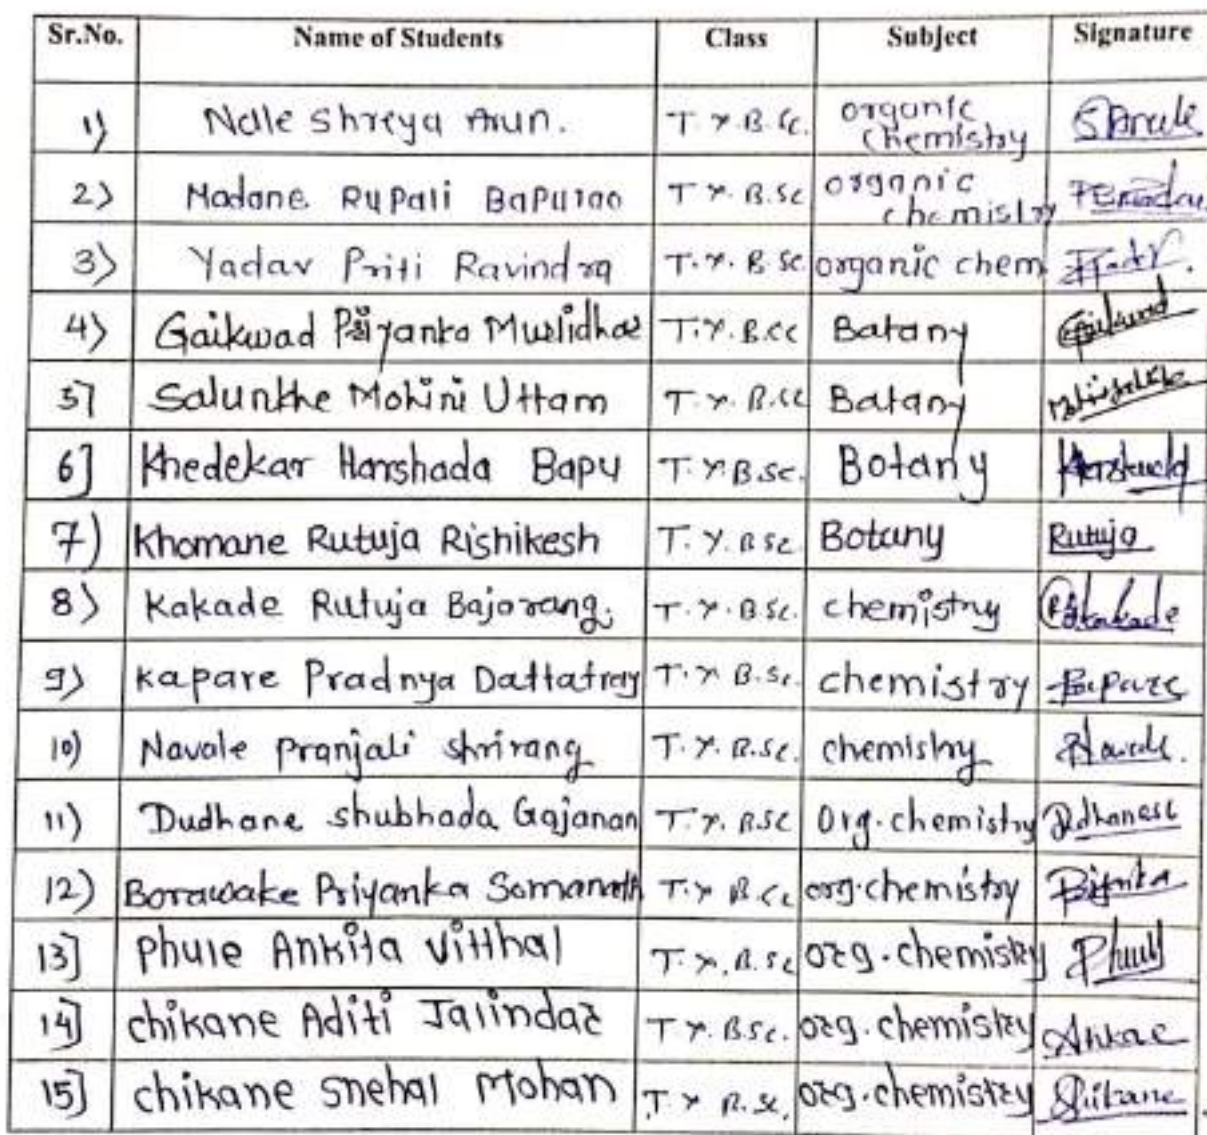 Sr.No. Name of Students Class Subject Signature
1) Nale Shreya Arun. T.Y.B.Sc. organic chemistry
2) Madane Rupali Bapurao T.Y.B.Sc organic chemistry
3) Yadav Priti Ravindra T.Y.B.Sc organic chem
4) Gaikwad Priyanka Murlidhar T.Y.B.Sc Batany Gaikwad
5] Salunkhe Mohini Uttam T.Y.B.Sc Batany
6] Khedekar Harshada Bapu T.Y.B.Sc. Botany Harshada
7) Khomane Rutuja Rishikesh T.Y.B.Sc. Botany Rutuja
8) Kakade Rutuja Bajarang. T.Y.B.Sc. chemistry
9) Kapare Pradnya Dattatray T.Y.B.Sc. chemistry
10) Navale Pranjali Shrirang T.Y.B.Sc. chemistry
11) Dudhane shubhada Gajanan T.Y.B.Sc Org.chemistry
12) Borawake Priyanka Somanath T.Y.B.Sc org.chemistry
13] Phule Ankita Vitthal T.Y.B.Sc org.chemistry
14] chikane Aditi Jalindar T.Y.B.Sc. org.chemistry
15] chikane Snehal Mohan T.Y B.Sc. org.chemistry